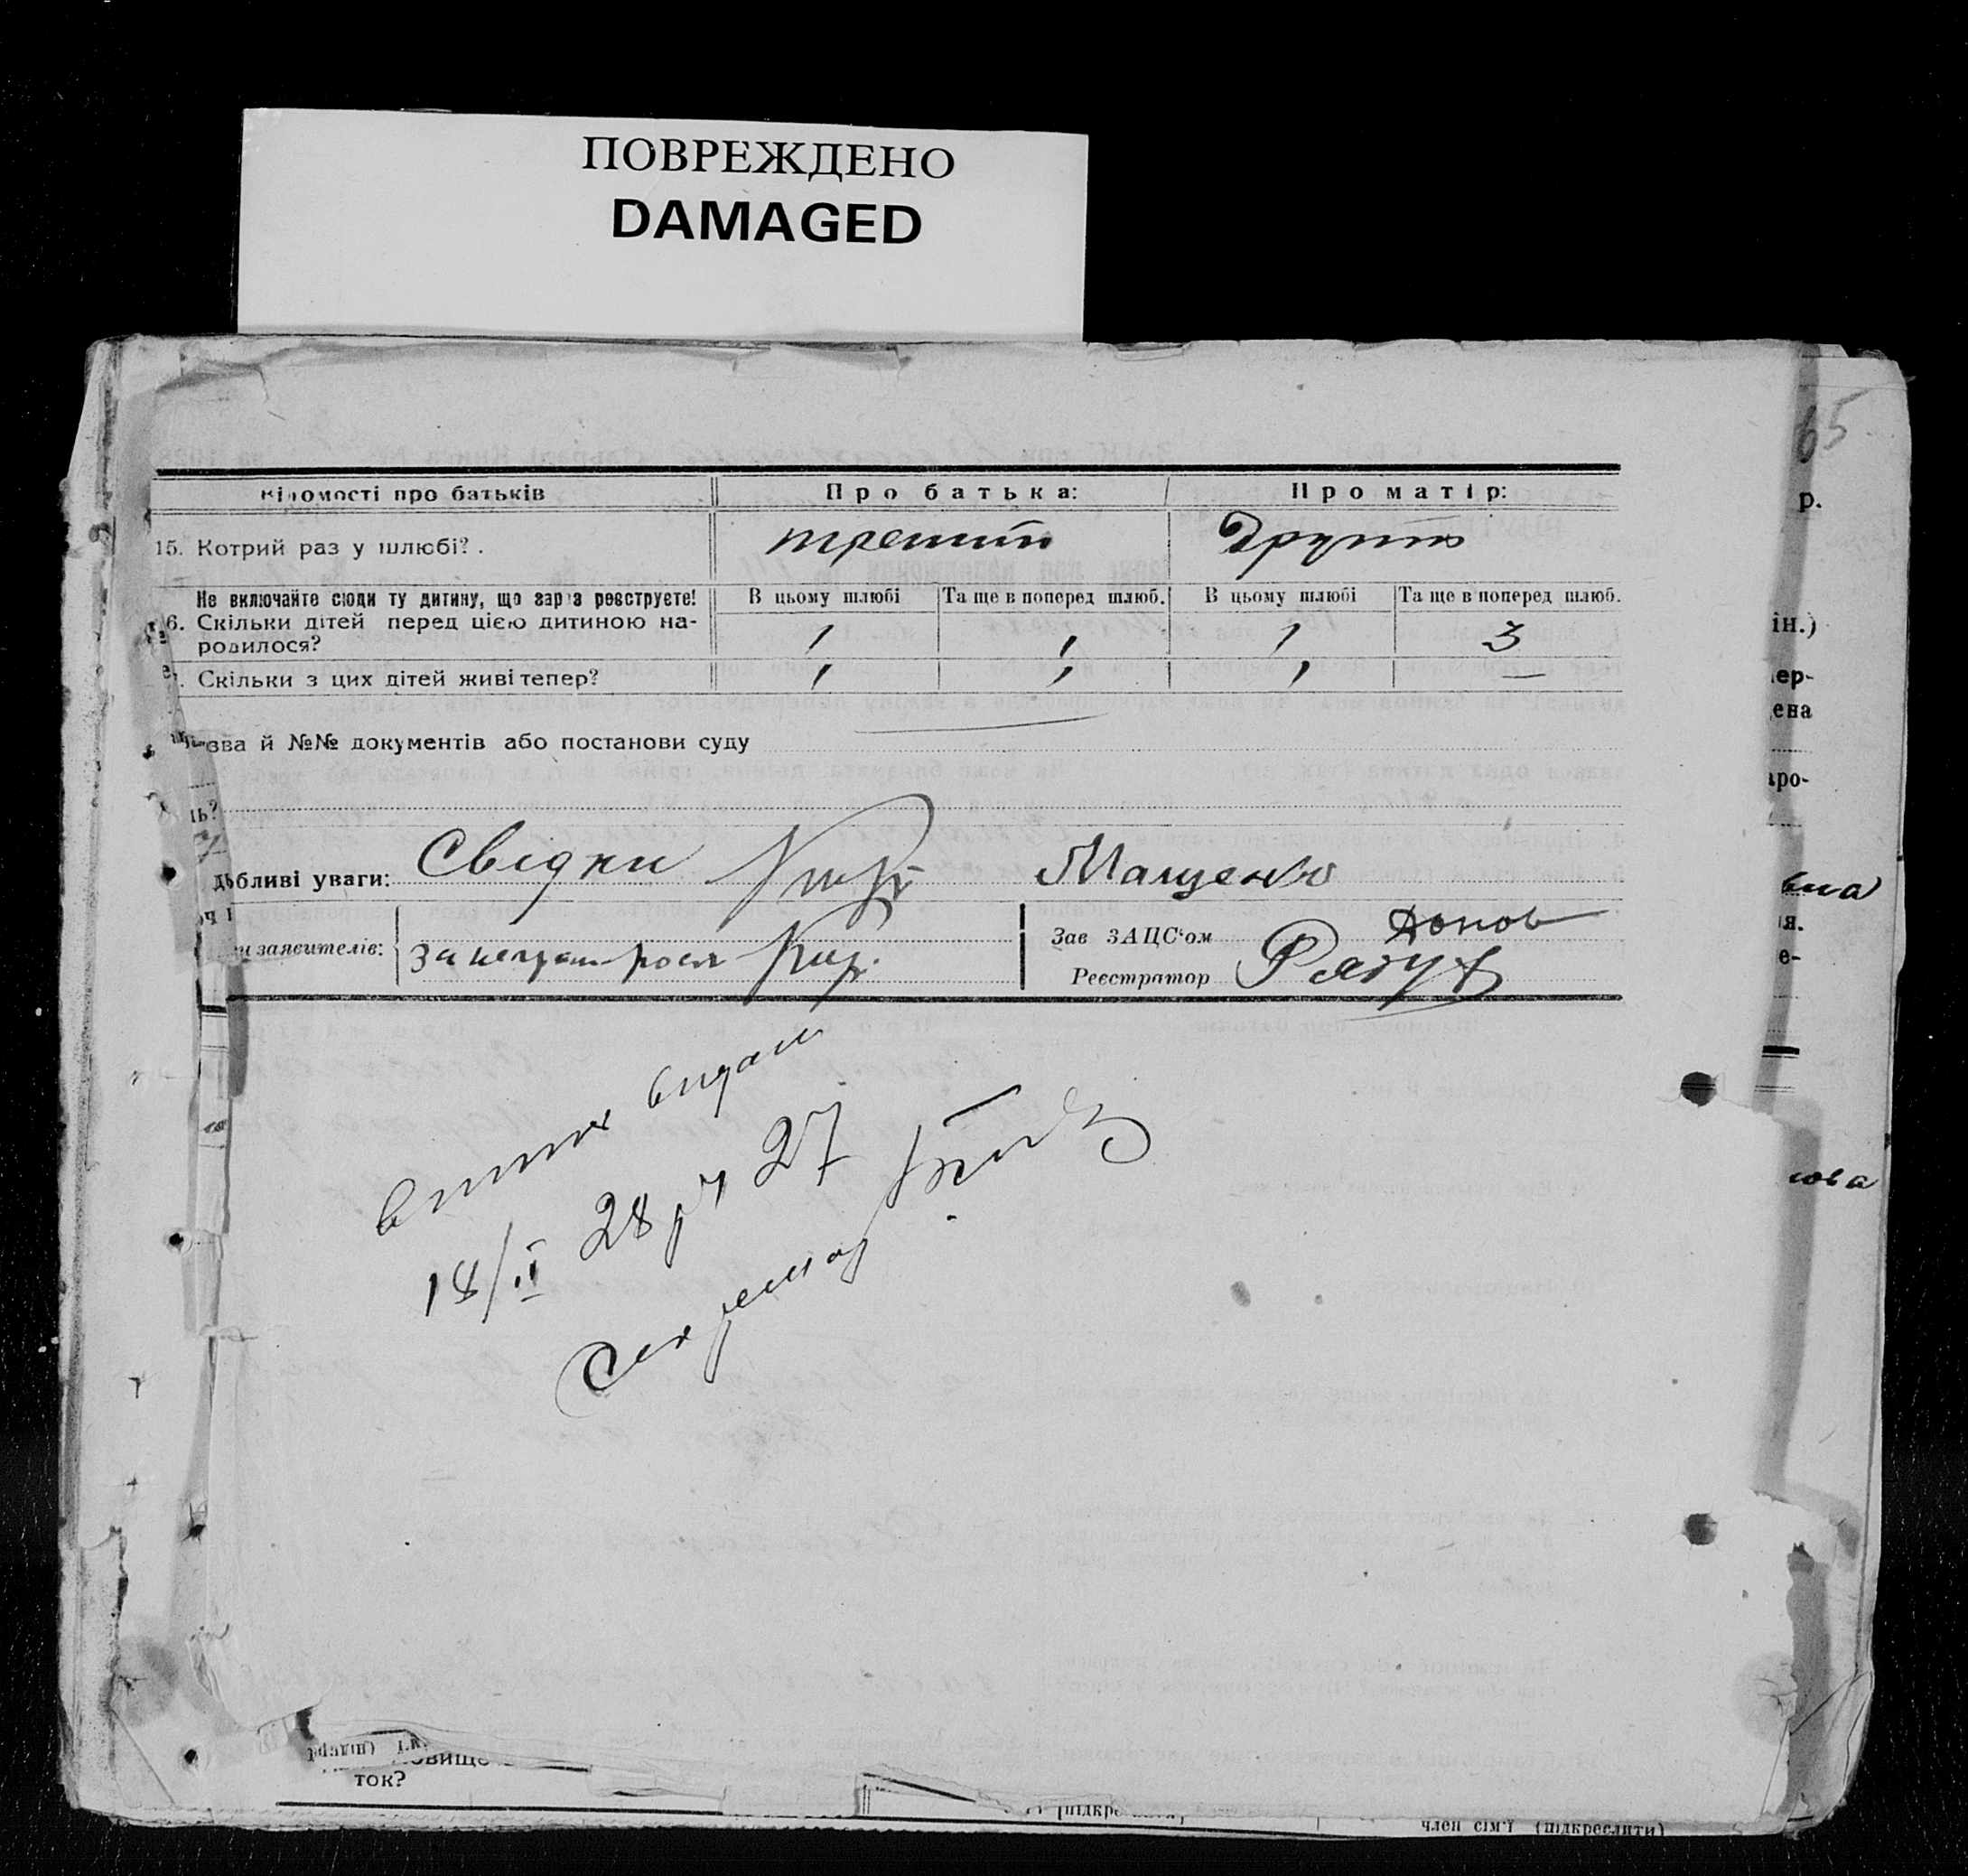 ПОВРЕЖДЕНО
DAMAGED
65
відомості про батьків Про батька: Про матір:
р.
15. Котрий раз у шлюбі? . третий другий
Не включайте сюди ту дитину, що зараз реєструєте! В цьому шлюбі Та ще в поперед шлюб. В цьому шлюбі Та ще в поперед шлюб.
6. Скільки дітей перед цією дитиною на-
родилося? 1 1 1 3
ін.)
. Скільки з цих дітей живі тепер? 1 1 1 —
ер-
ена
зва й №№ документів або постанови суду
аро-
ь?
бливі уваги: Свідки Мащенко
вна
я.
заявителів: За неграм росп Кир. Зав ЗАЦС'ом
Реєстратор
е-
витяг видан
18/II 28 р № 27
ова
Секретар
ток?
член сім'ї (підкреслити)